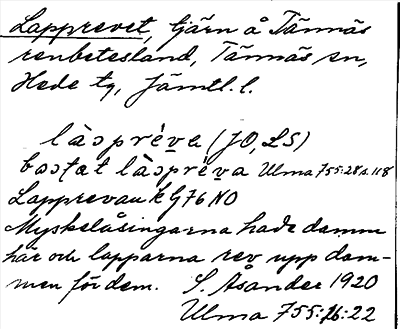 Lapprevet, tjärn å Tännäs
renbetesland, Tännäs sn,
Hede tg, Jämtl. l.
làspréva (JO, LS)
bostat làspréva Ulma 755:28 s. 118
Lapprevau k G76 NO
Myskelåsingarna hade damm
här och lapparna rev upp dam-
men för dem. S. Åsander 1920
Ulma 755:16:22